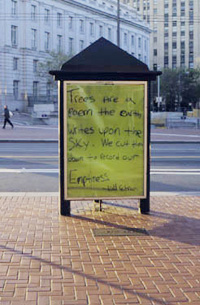 Trees are a
Poem the earth
writes upon the
Sky. We cut them
down to record our
Emptiness.